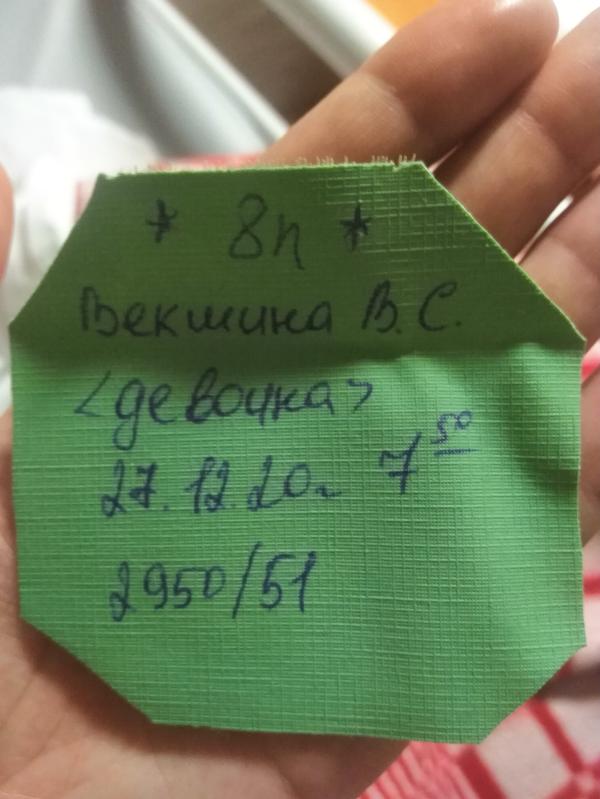 * 8п *
Векшина В. С.
<девочка>
27.12.20г 7 50
2950/51